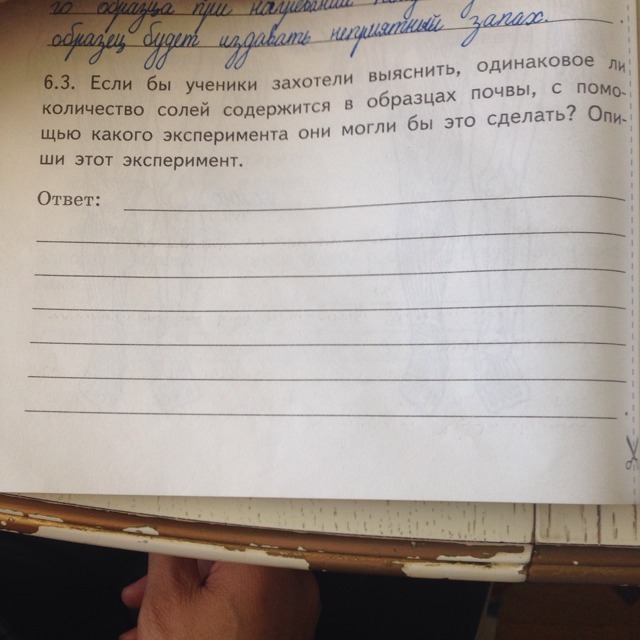 го образца при нагревании
образец будет издавать неприятный запах.
6.3. Если бы ученики захотели выяснить, одинаковое ли
количество солей содержится в образцах почвы, с помо-
щью какого эксперимента они могли бы это сделать? Опи-
ши этот эксперимент.
Ответ: